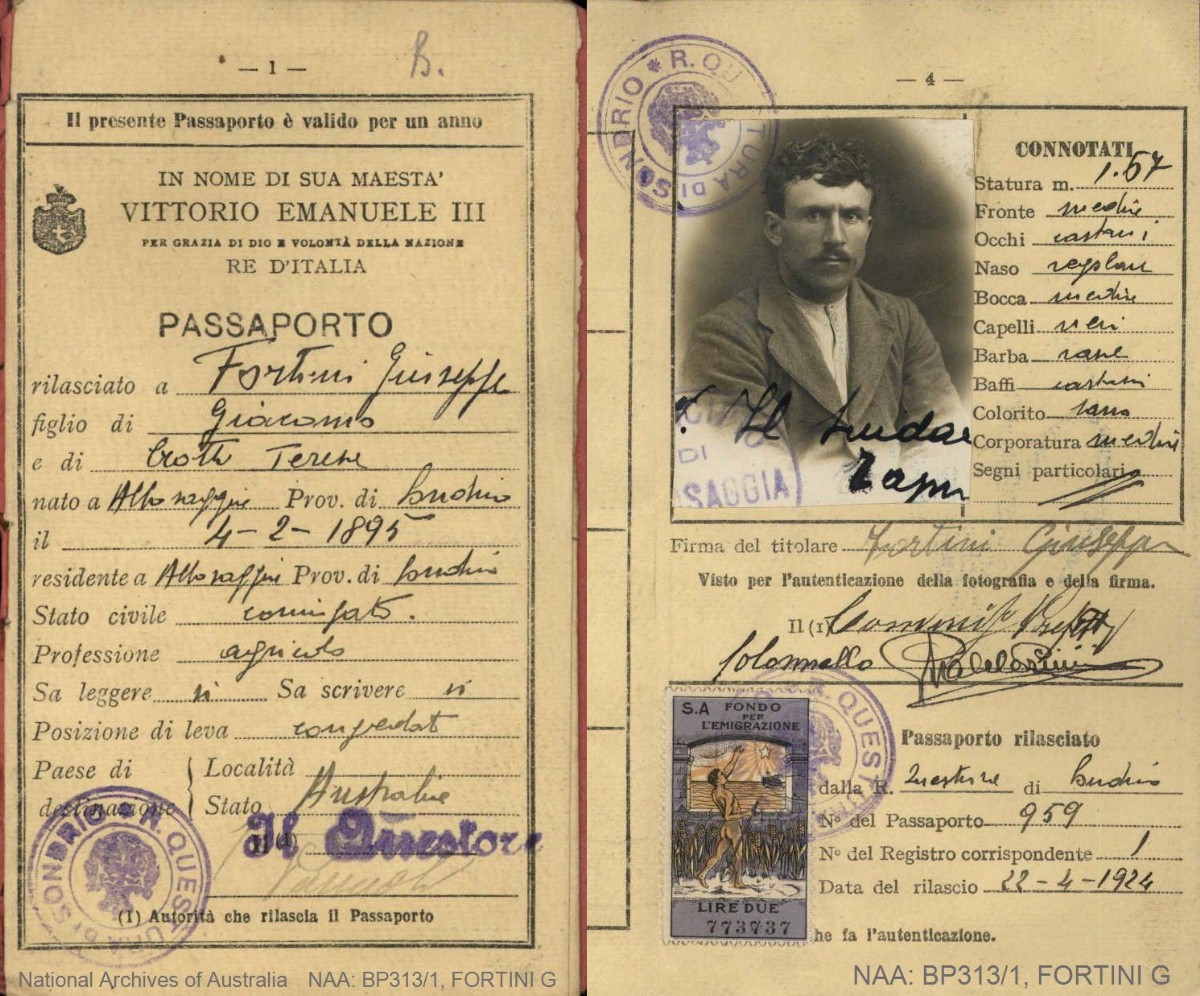 — 1 —
B.
Il presente Passaporto è valido per un anno
IN NOME DI SUA MAESTA'
VITTORIO EMANUELE III
PER GRAZIA DI DIO E VOLONTÀ DELLA NAZIONE
RE D'ITALIA
PASSAPORTO
rilasciato a Fortini Giuseppe
figlio di Giacomo
e di Crotti Terese
nato a Albosaggia Prov. di Sondrio
il 4-2-1895
residente a Albosaggia Prov. di Sondrio
Stato civile coniugato.
Professione agricolo
Sa leggere si Sa scrivere si
Posizione di leva congedato
Paese di destinazione Località
Stato Australia
Il Questore
SONDRIO * R. QUESTURA DI
(1) Autorità che rilascia il Passaporto
National Archives of Australia NAA: BP313/1, FORTINI G
— 4 —
SONDRIO * R. QUESTURA DI
CONNOTATI
Statura m. 1.57
Fronte media
Occhi castani
Naso regolare
Bocca media
Capelli neri
Barba rase
Baffi castani
Colorito sano
Corporatura media
Segni particolari
Il Sindaco
DI
SAGGIA
Firma del titolare Fortini Giuseppe
Visto per l'autenticazione della fotografia e della firma.
Il (1)
Colonnello
S.A FONDO
PER
L'EMIGRAZIONE
LIRE DUE
773737
R. QUESTURA
Passaporto rilasciato
dalla R. Questura di Sondrio
N° del Passaporto 959
N° del Registro corrispondente 1
Data del rilascio 22-4-1924
che fa l'autenticazione.
NAA: BP313/1, FORTINI G